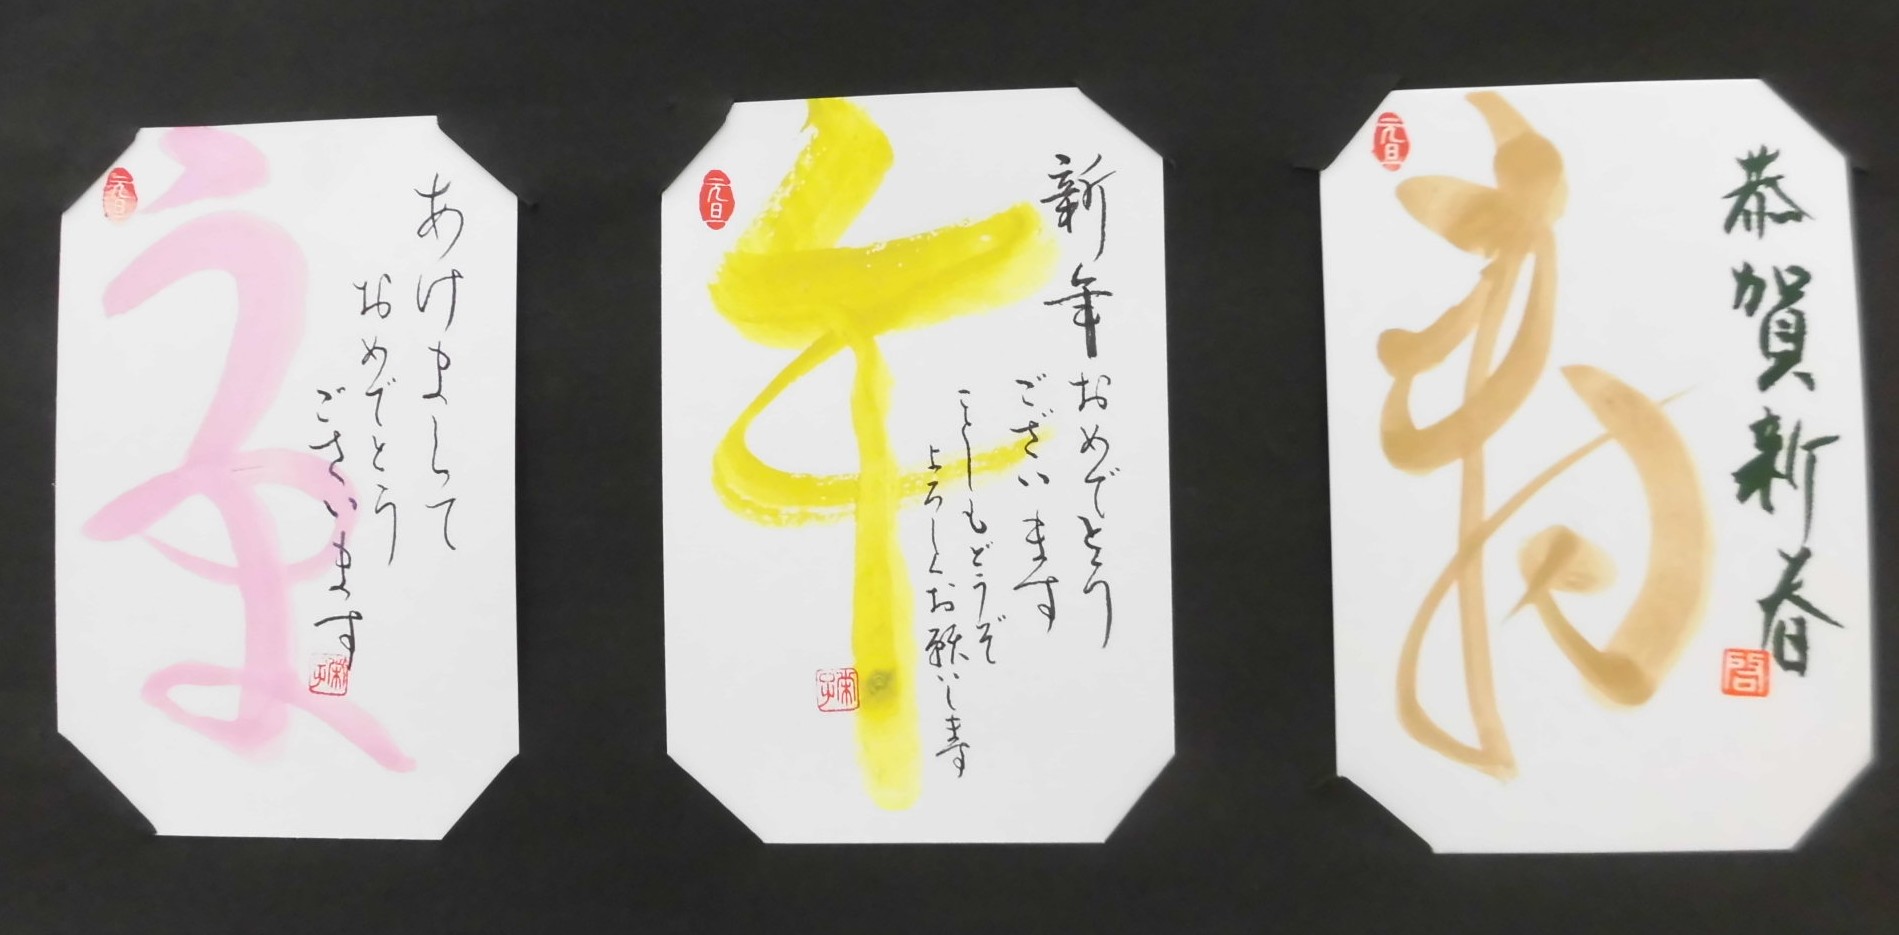 元旦
あけまして
おめでとう
ございます
元旦
午
新年おめでとう
ございます
ことしもどうぞ
よろしくお願いします
元旦
寿
恭賀新春
啓